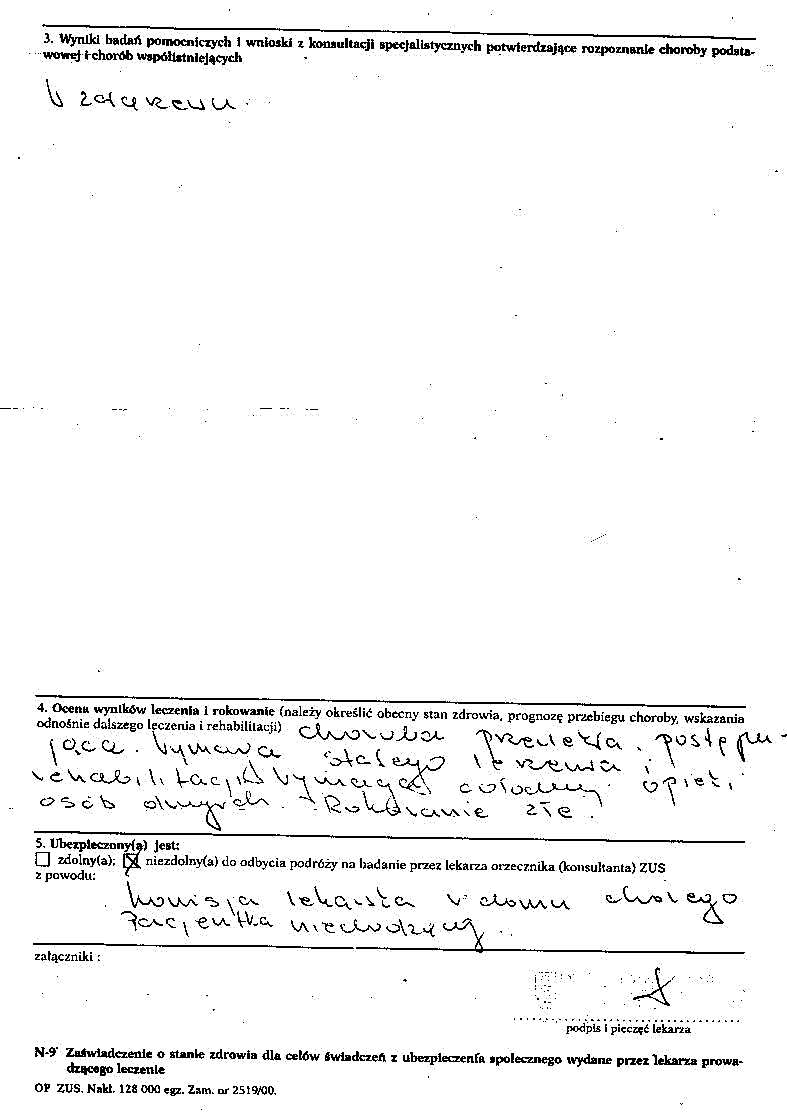 3. Wyniki badań pomocniczych i wnioski z konsultacji specjalistycznych potwierdzające rozpoznanie choroby podsta-
wowej i chorób współistniejących
W załączeniu
4. Ocena wyników leczenia i rokowanie (należy określić obecny stan zdrowia, prognozę przebiegu choroby, wskazania
odnośnie dalszego leczenia i rehabilitacji) choroba przewlekła, postępu-
jąca. Wymaga stałego leczenia i
rehabilitacji, wymagać całodobowej opieki
osób drugich. Rokowanie złe.
5. Ubezpieczony(a) jest:
zdolny(a); niezdolny(a) do odbycia podróży na badanie przez lekarza orzecznika (konsultanta) ZUS
z powodu:
komisja lekarska w domu chorego
Pacjentka niechodząca
załączniki :
podpis i pieczęć lekarza
N-9 Zaświadczenie o stanie zdrowia dla celów świadczeń z ubezpieczenia społecznego wydane przez lekarza prowa-
dzącego leczenie
OP ZUS. Nakł. 128 000 egz. Zam. nr 2519/00.